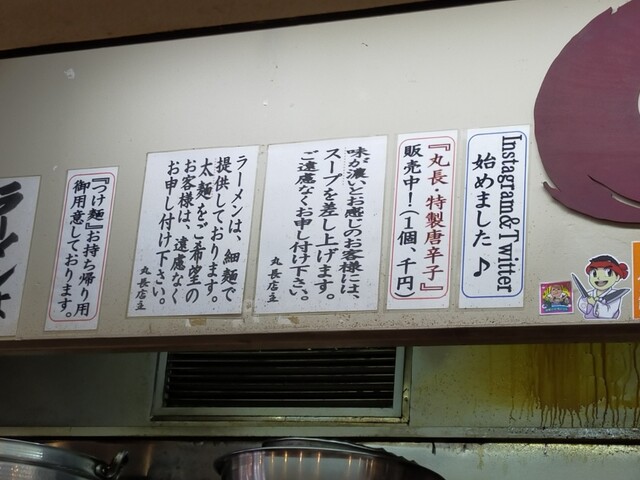 Instagram&Twitter
始めました♪
『丸長 特製唐辛子』
販売中！（1個、千円）
味が濃いとお感じのお客様には、
スープを差し上げます。
ご遠慮なくお申し付け下さい。
丸長店主
ラーメンは、細麺で
提供しております。
太麺をご希望の
お客様は、遠慮なく
お申し付け下さい。
丸長店主
『つけ麺』お持ち帰り用
御用意しております。